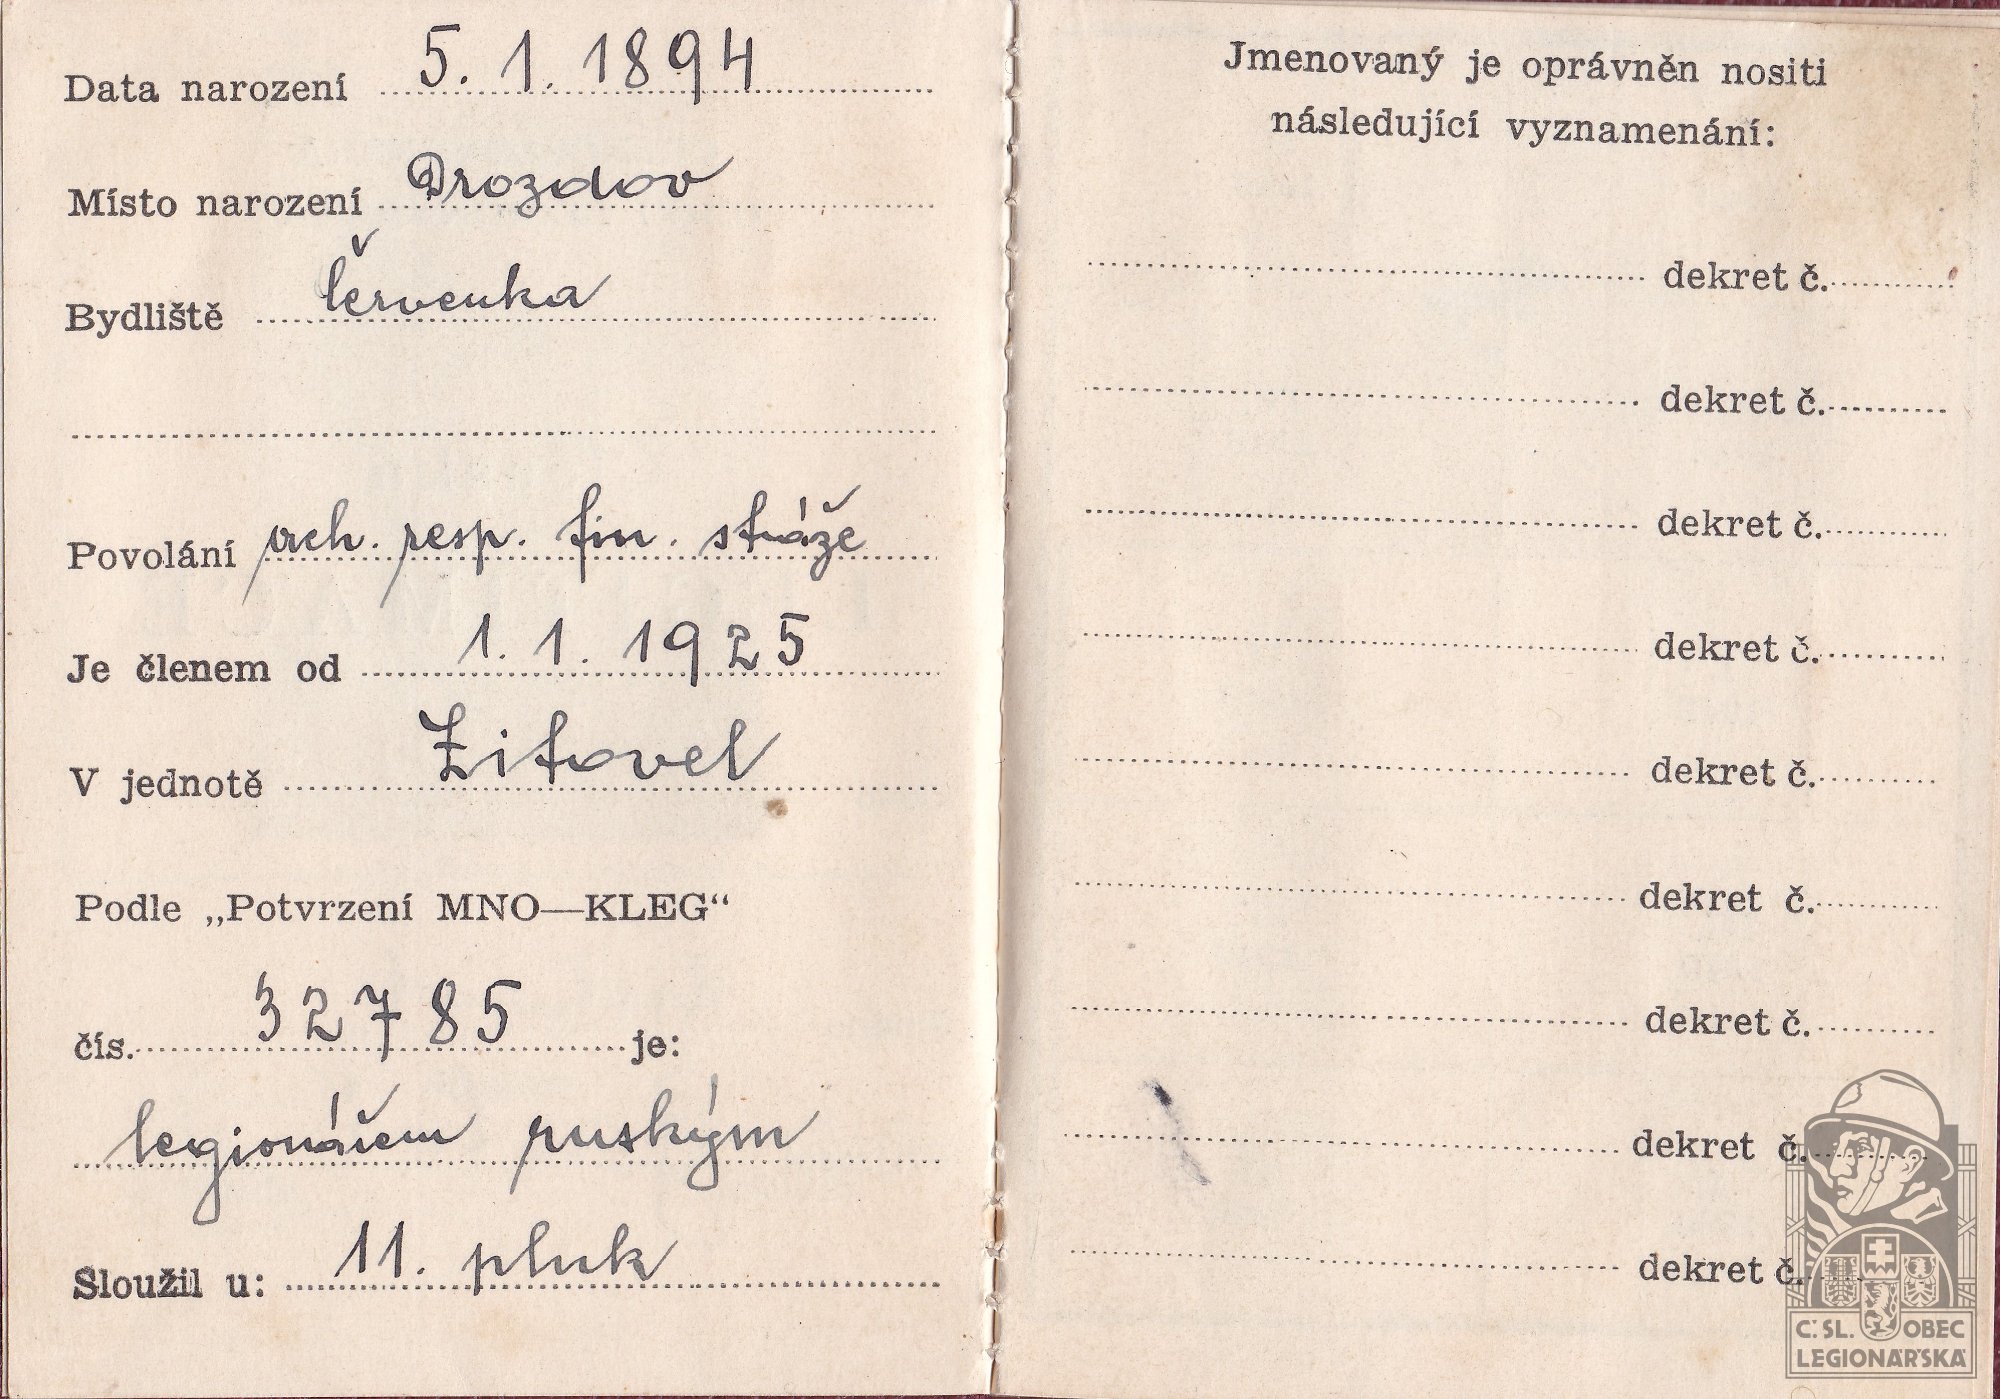 Data narození 5. 1. 1894
Místo narození Drozdov
Bydliště Červenka
Povolání vrch. resp. fin. stráže
Je členem od 1. 1. 1925
V jednotě Litovel
Podle „Potvrzení MNO—KLEG“
čís. 32785 je:
legionářem ruským
Sloužil u: 11. pluk
Jmenovaný je oprávněn nositi
následující vyznamenání:
dekret č.
dekret č.
dekret č.
dekret č.
dekret č.
dekret č.
dekret č.
dekret č.
dekret č.
Č.SL. OBEC
LEGIONÁŘSKÁ